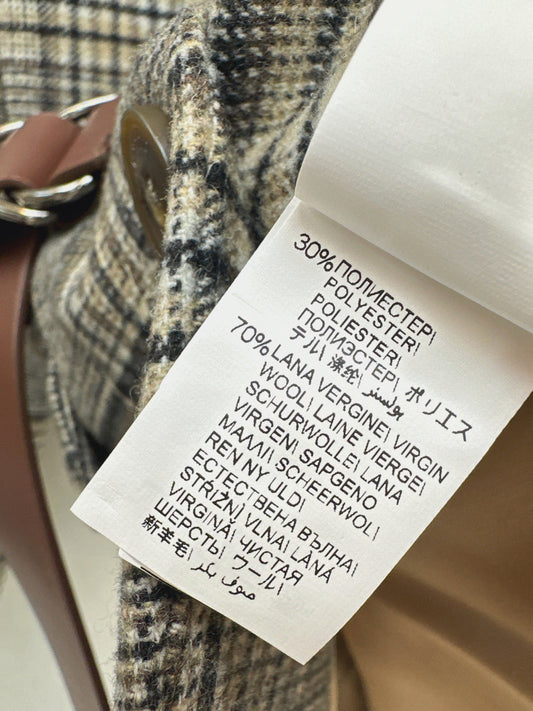 30%ПОЛИЕСТЕР\
POLYESTER\
POLIESTER\
ПОЛИЭСТЕР\ ポリエス
テル\ 涤纶\ بوليستر\
70%LANA VERGINE\ VIRGIN
WOOL\ LAINE VIERGE\
SCHURWOLLE\ LANA
VIRGEN\ ΠΑΡΘΕΝΟ
ΜΑΛΛΙ\ SCHEERWOL\
REN NY ULD\
ЕСТЕСТВЕНА ВЪЛНА\
STŘIŽNÍ VLNA\ LÂNĂ
VIRGINĂ\ ЧИСТАЯ
ШЕРСТЬ\ ウール\
新羊毛\ صوف بكر\